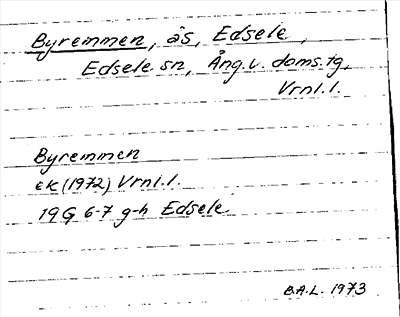 Byremmen, ås, Edsele,
Edsele sn, Ång.v. doms.tg,
Vrnl.l.
Byremmen
EK (1972) Vrnl.l.
19G 6-7 g-h Edsele
B.A.L. 1973